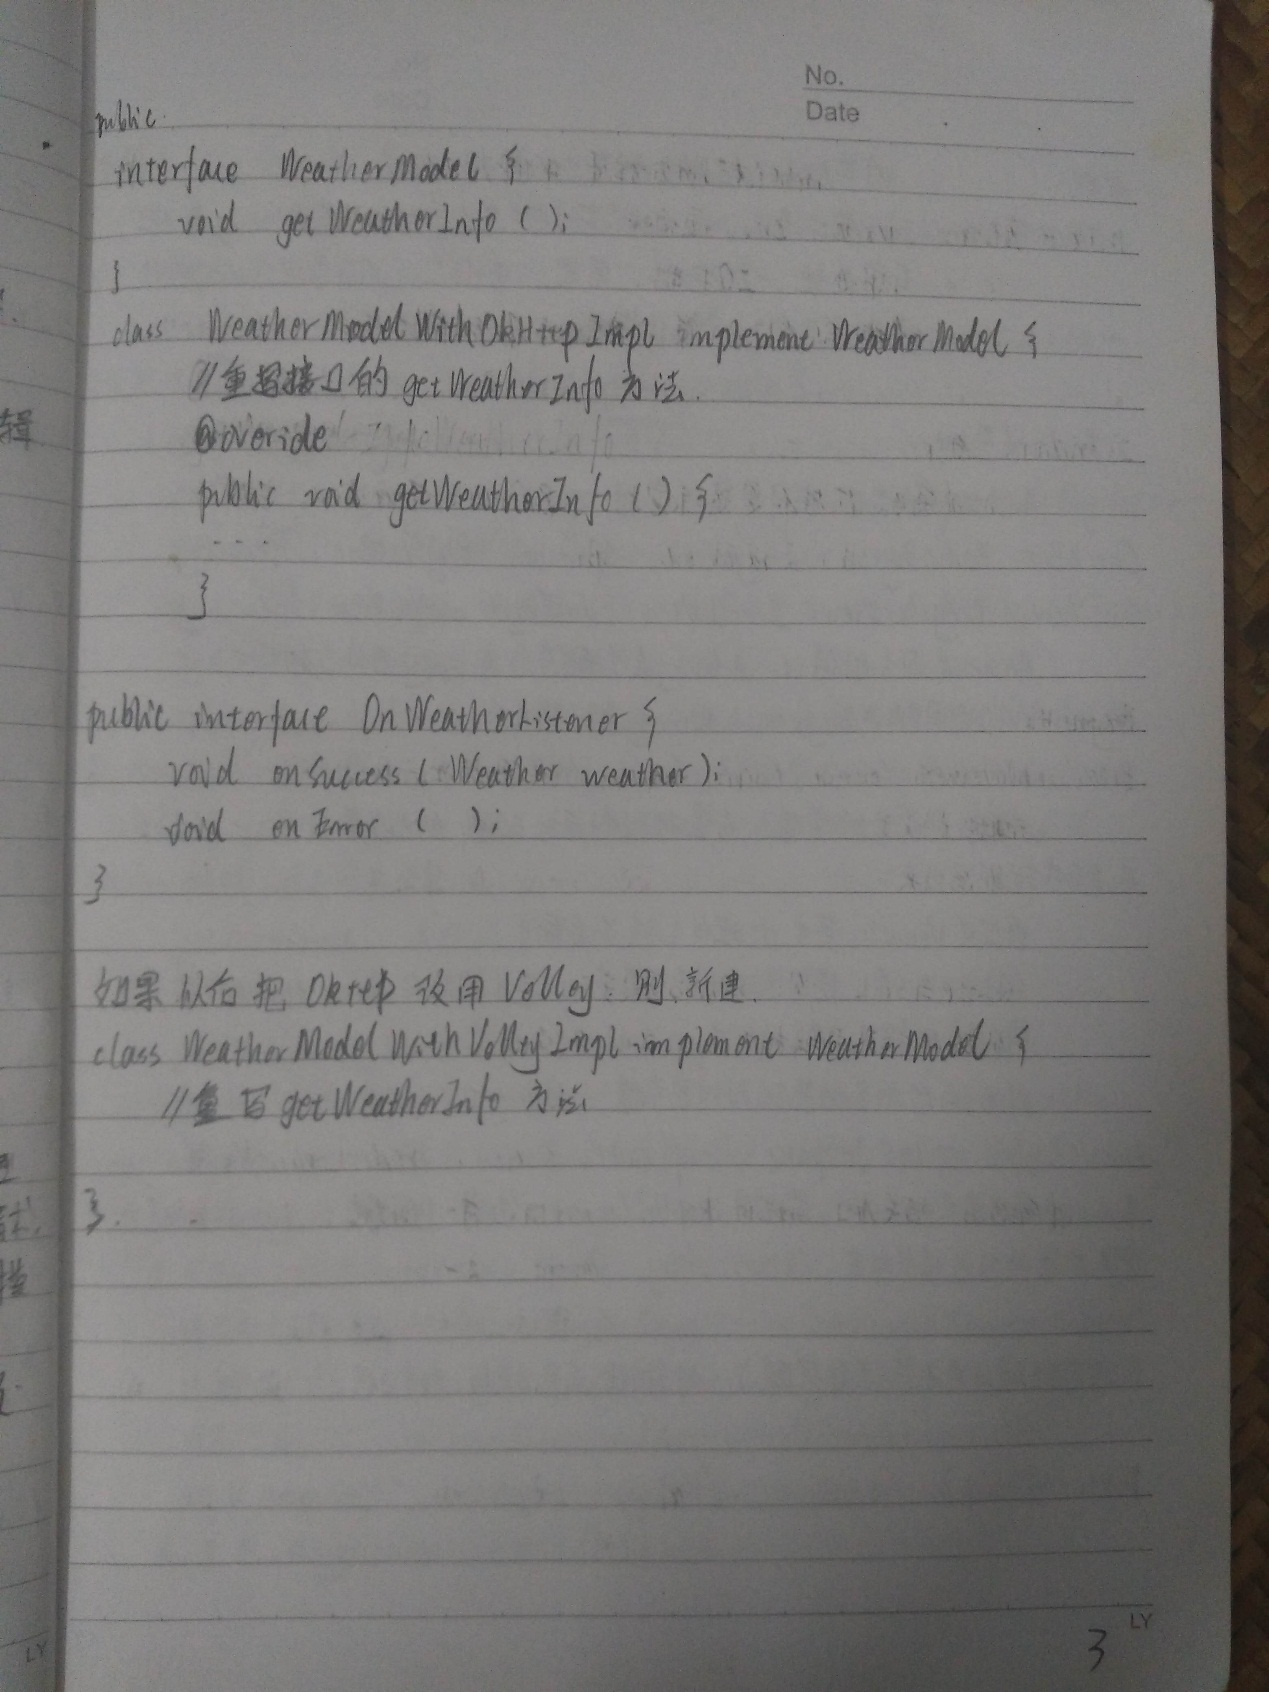 No.
Date
public
interface WeatherModel {
void getWeatherInfo ( );
}
class WeatherModelWithOkHttpImpl implement WeatherModel {
//重写接口的 getWeatherInfo 方法.
@override
public void getWeatherInfo ( ) {
. . . .
}
public interface OnWeatherListener {
void onSuccess ( Weather weather );
void onError ( );
}
如果以后把 Okttp 改用 Volley. 则新建.
class WeatherModelWithVolleyImpl implement WeatherModel {
//重写 getWeatherInfo 方法
}.
LY
3
辑
LY